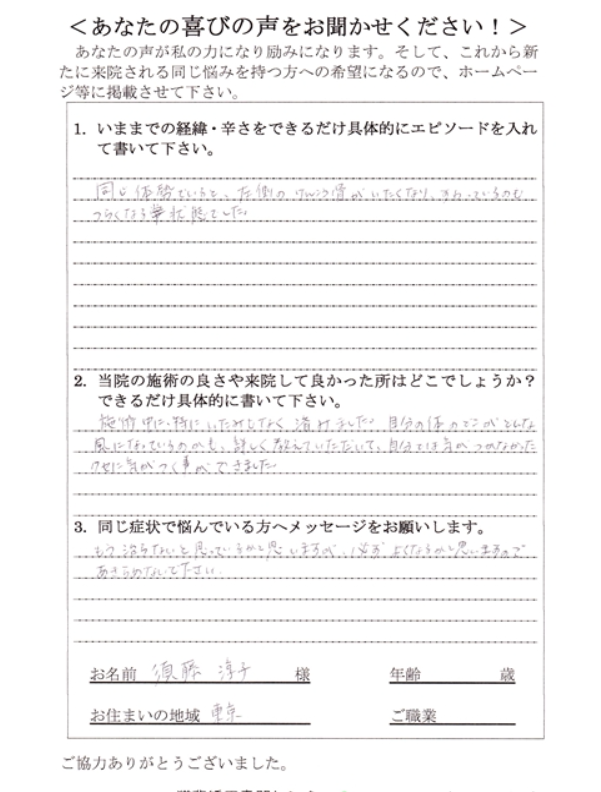 ＜あなたの喜びの声をお聞かせください！＞
あなたの声が私の力になり励みになります。そして、これから新
たに来院される同じ悩みを持つ方への希望になるので、ホームペー
ジ等に掲載させて下さい。
1. いままでの経緯・辛さをできるだけ具体的にエピソードを入れ
て書いて下さい。
同じ体勢でいると、左側のけんこう骨がいたくなり、すわっているのも
つらくなる状態でした。
2. 当院の施術の良さや来院して良かった所はどこでしょうか？
できるだけ具体的に書いて下さい。
施術中に、特にいたみもなく済みました。自分の体のどこがどんな
風になっているのかも、詳しく教えていただいて、自分では気がつかなかった
クセに気がつく事ができました。
3. 同じ症状で悩んでいる方へメッセージをお願いします。
もう治らないと思っているかと思いますが、必ずよくなるかと思いますので
あきらめないで下さい。
お名前 須藤 淳子 様 年齢 歳
お住まいの地域 東京 ご職業
ご協力ありがとうございました。